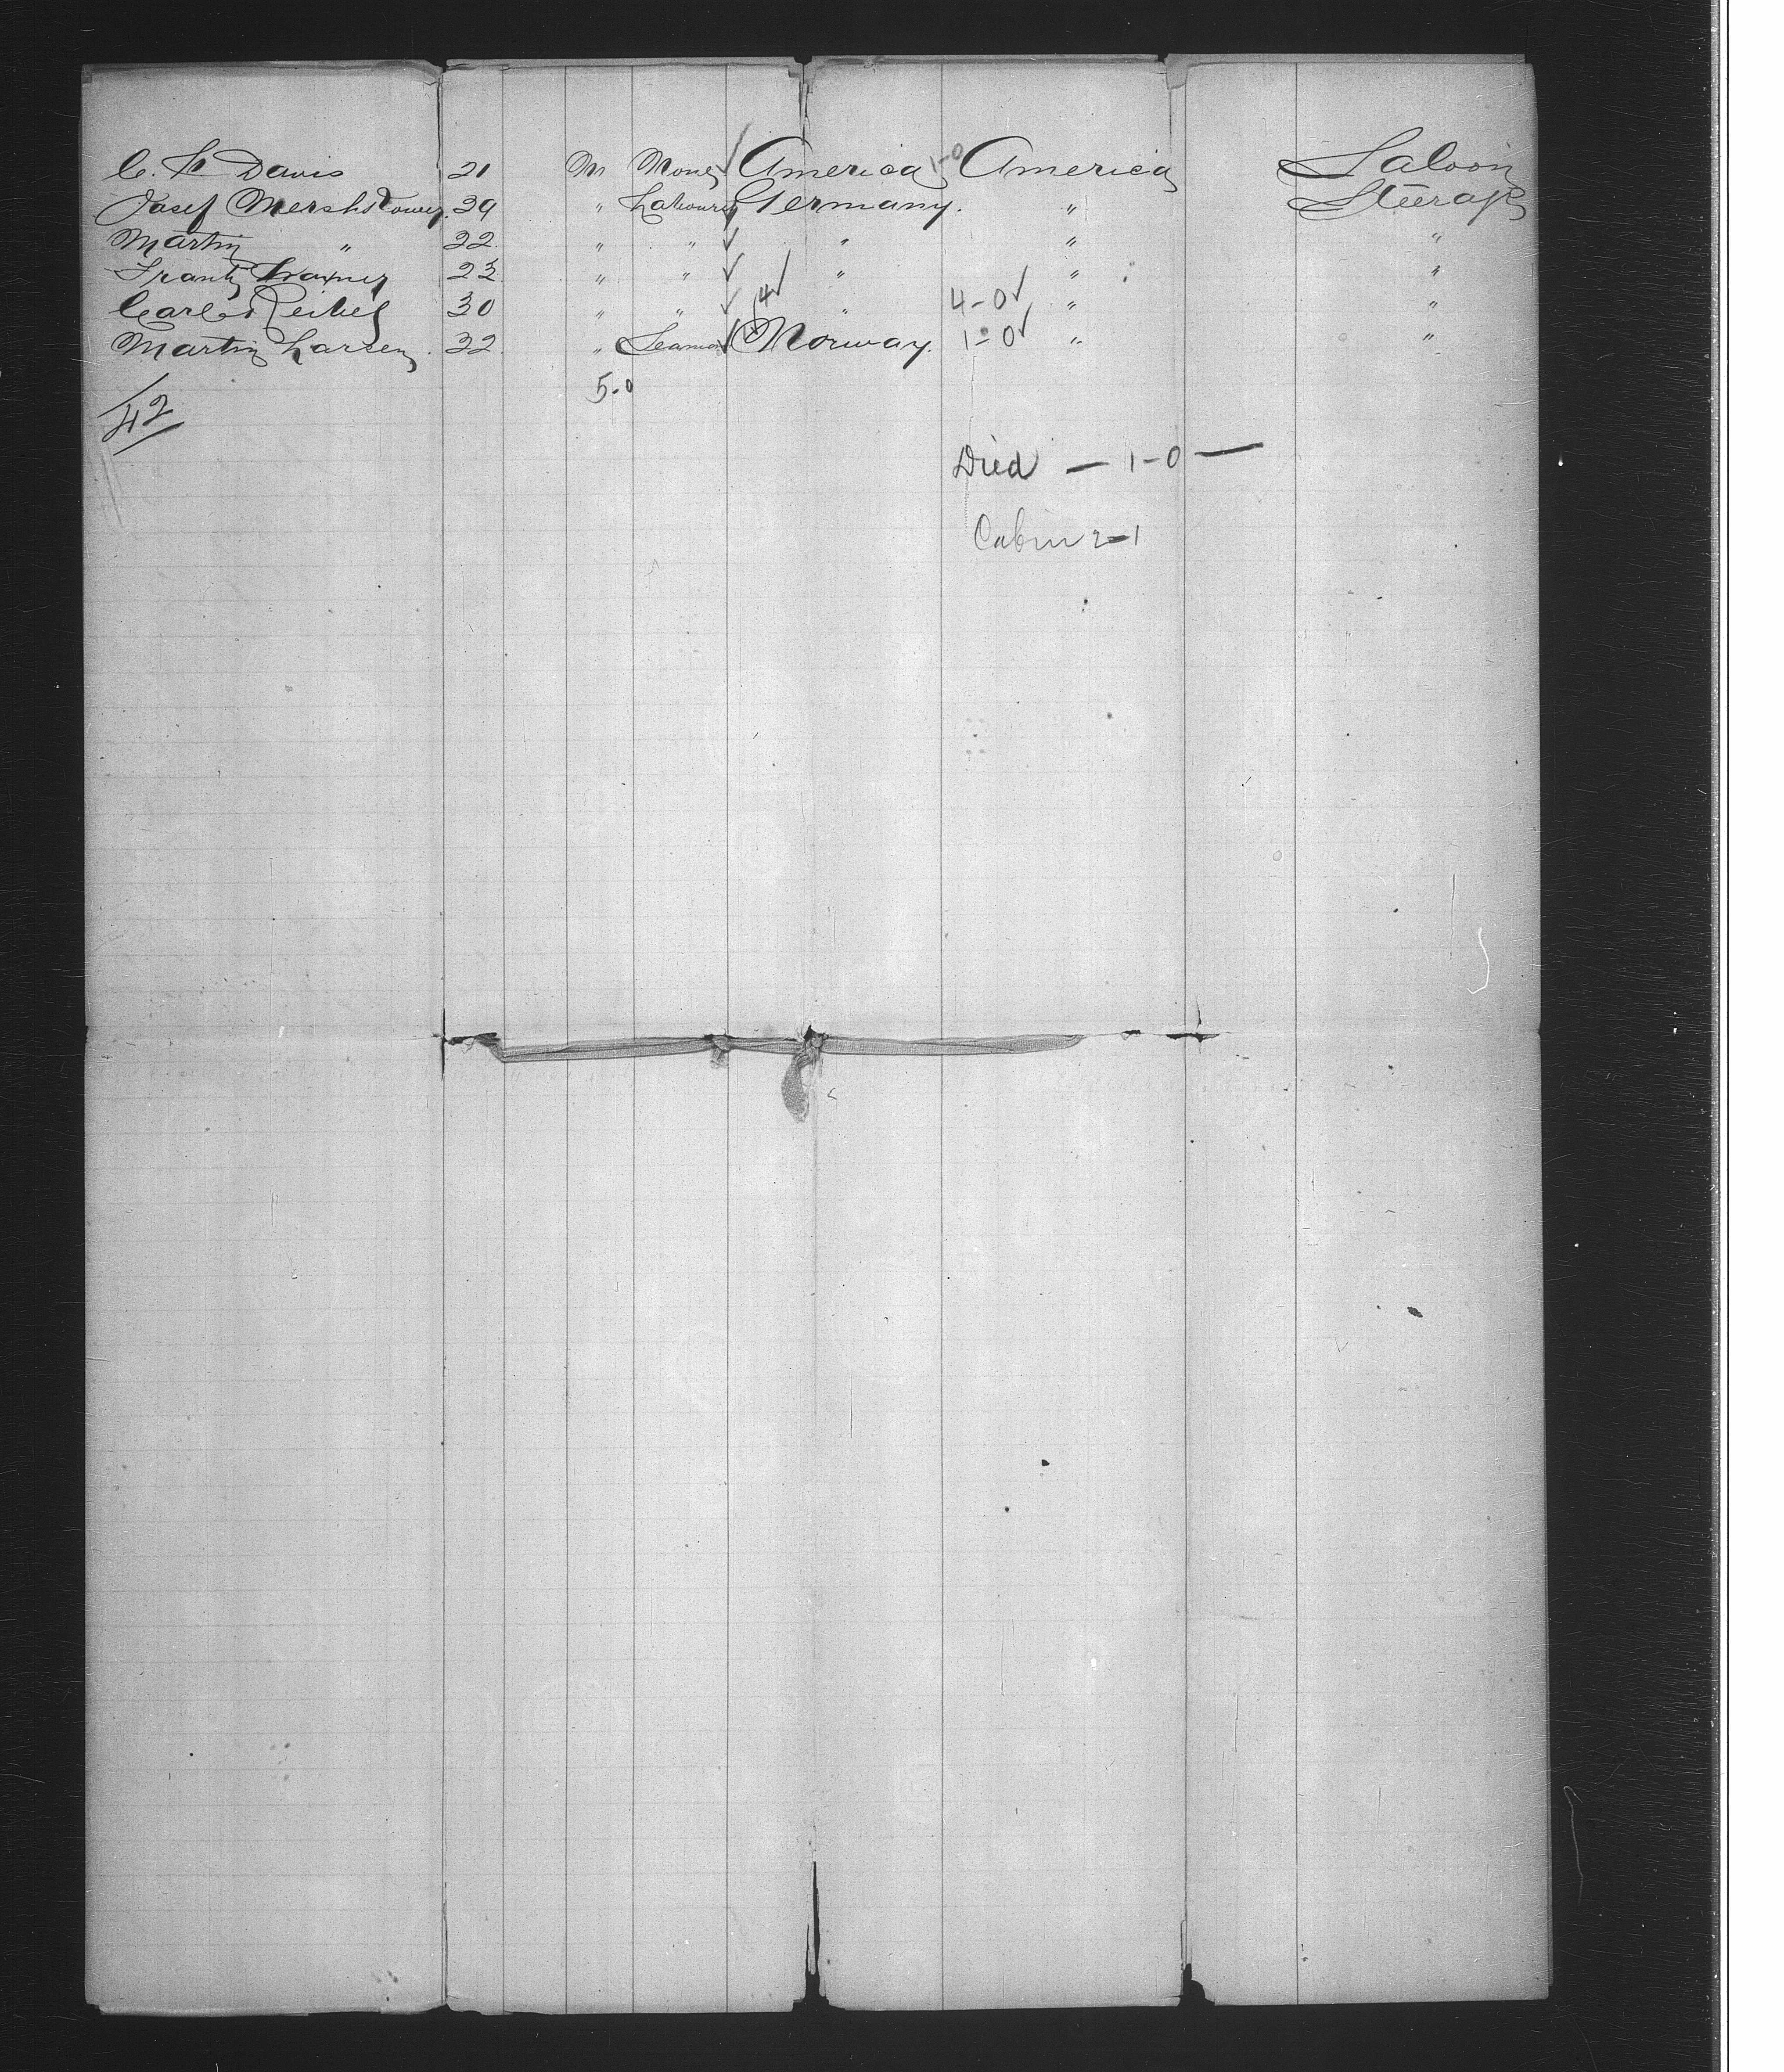 C. H Davis 21 M None America 1-0 America Saloon
Josef 29 " Labourer Germany. " Steerage
Martin " 22 " " " " "
Frantz 23 " " " " "
Carl 30 " " 4 " 4-0 " "
Martin Larsen. 32 " Seaman Norway. 1-0 " "
5-0
42
Died — 1-0 —
Cabin 2-1